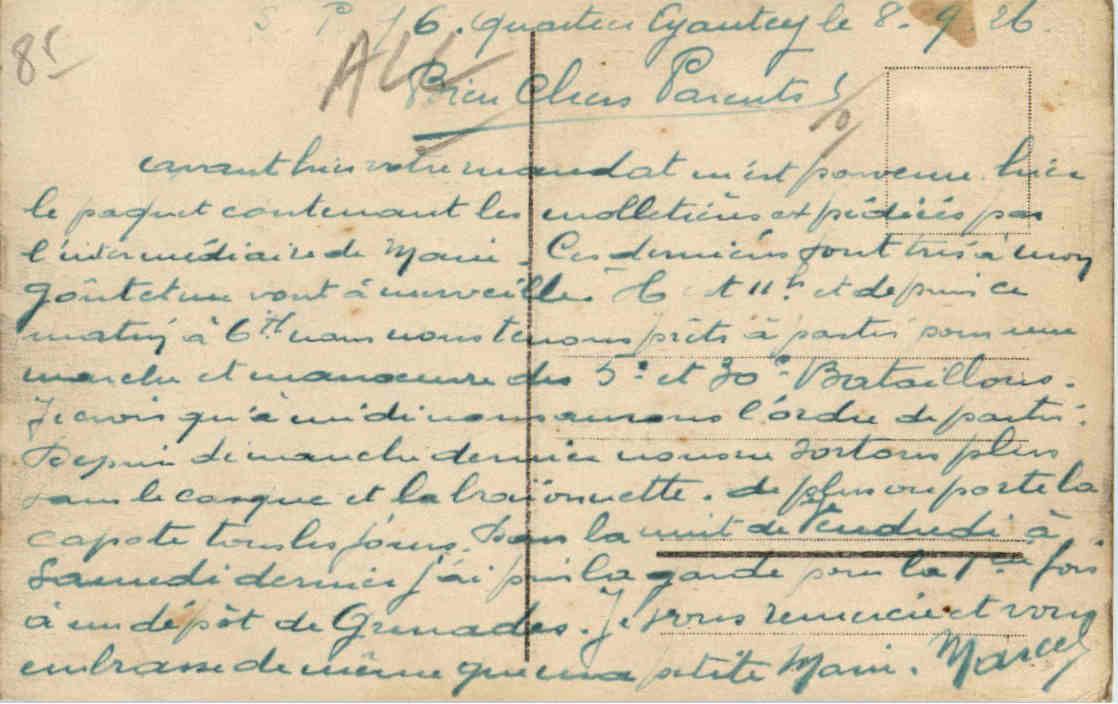 S. P. 76. quartier Gyautey le 8-9.26.
85
ALL
Bien Chers Parents!
10/
avant hier votre mandat m'est parvenu. hier
le paquet contenant les molletières expédiées par
l'intermédiaire de Mani. Ces dernières sont très à mon
goût et me vont à merveille. Il est 11h et depuis ce
matin à 6h nous nous tenons prêts à partir pour une
marche et manoeuvre des 5e et 30e Bataillons.
Je crois qu'à midi nous aurons l'ordre de partir.
Depuis dimanche dernier nous ne sortons plus
sans le casque et la baïonnette. de plus on porte la
capote tous les jours. Dans la nuit de Vendredi à
Samedi dernier j'ai pris la garde pour la 1ère fois
à un dépôt de Grenades. Je vous remercie et vous
embrasse de même que ma petite Mani. Marcel